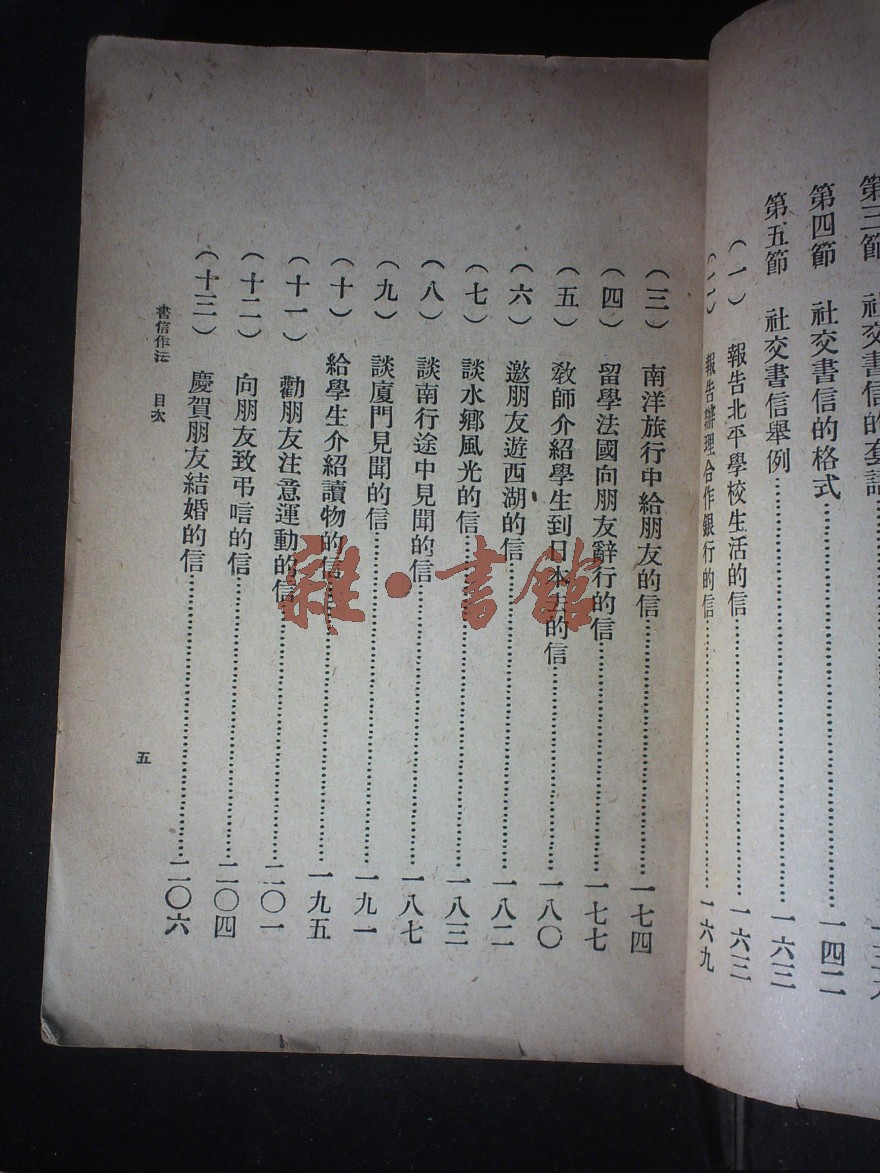 第三節　社交書信的套語
第四節　社交書信的格式……一四二
第五節　社交書信舉例……一六三
（一）報告北平學校生活的信……一六三
（二）報告辦理合作銀行的信……一六九
（三）南洋旅行中給朋友的信……一七四
（四）留學法國向朋友辭行的信……一七七
（五）教師介紹學生到日本去的信……一八〇
（六）邀朋友遊西湖的信……一八二
（七）談水鄉風光的信……一八三
（八）談南行途中見聞的信……一八七
（九）談廈門見聞的信……一九一
（十）給學生介紹讀物的信……一九五
（十一）勸朋友注意運動的信……二〇一
（十二）向朋友致弔唁的信……二〇四
（十三）慶賀朋友結婚的信……二〇六
書信作法　目次
五
雜·書館